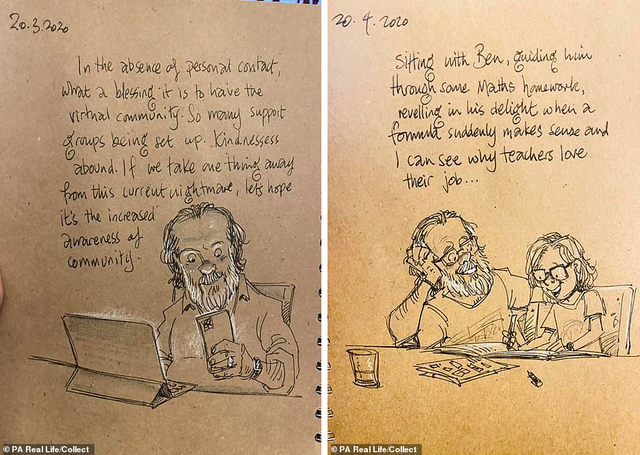 20.3.2020
In the absence of personal contact,
what a blessing it is to have the
virtual community. So many support
groups being set up. Kindnessess
abound. If we take one thing away
from this current nightmare, lets hope
it's the increased
awareness of
community.
© PA Real Life/Collect
20.4.2020
Sitting with Ben, guiding him
through some Maths homework,
revelling in his delight when a
formula suddenly makes sense and
I can see why teachers love
their job...
© PA Real Life/Collect